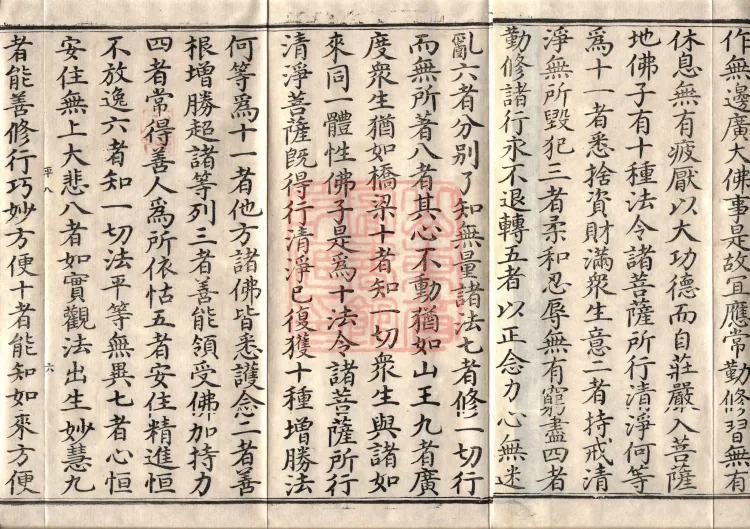 作無邊廣大佛事是故宜應常勤修習無有
休息無有疲厭以大功德而自莊嚴入菩薩
地佛子有十種法令諸菩薩所行清淨何等
爲十一者悉捨資財滿衆生意二者持戒清
淨無所毀犯三者柔和忍辱無有窮盡四者
勤修諸行永不退轉五者以正念力心無迷
亂六者分别了知無量諸法七者修一切行
而無所著八者其心不動猶如山王九者廣
度衆生猶如橋梁十者知一切衆生與諸如
來同一體性佛子是爲十法令諸菩薩所行
清淨菩薩既得行清淨已復獲十種增勝法
何等爲十一者他方諸佛皆悉護念二者善
根增勝超諸等列三者善能領受佛加持力
四者常得善人爲所依怙五者安住精進恒
不放逸六者知一切法平等無異七者心恒
安住無上大悲八者如實觀法出生妙慧九
平八 六
者能善修行巧妙方便十者能知如來方便